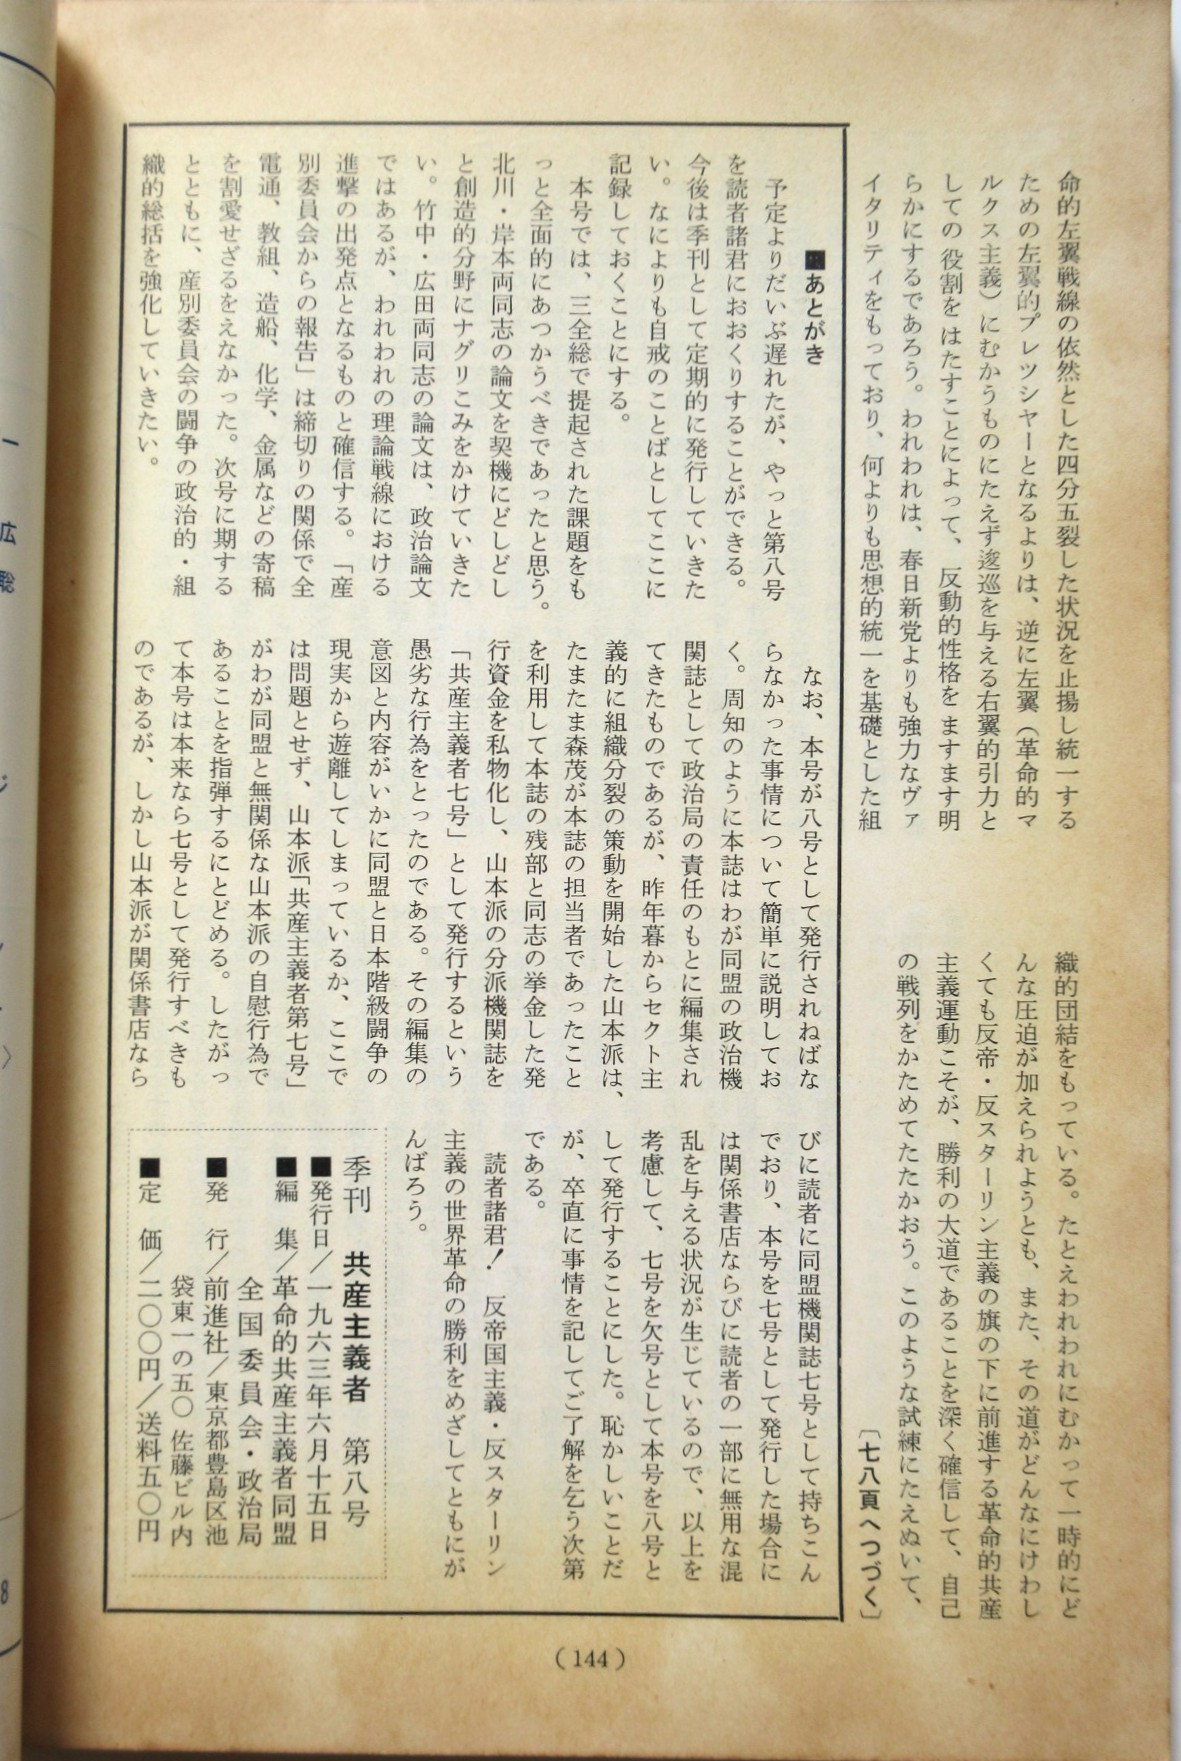 命的左翼戦線の依然とした四分五裂した状況を止揚し統一する
ための左翼的プレッシャーとなるよりは、逆に左翼(革命的マ
ルクス主義)にむかうものにたえず逡巡を与える右翼的引力と
しての役割をはたすことによって、反動的性格をますます明
らかにするであろう。われわれは、春日新党よりも強力なヴァ
イタリティをもっており、何よりも思想的統一を基礎とした組
織的団結をもっている。たとえわれわれにむかって一時的にど
んな圧迫が加えられようとも、また、その道がどんなにけわし
くても反帝・反スターリン主義の旗の下に前進する革命的共産
主義運動こそが、勝利の大道であることを深く確信して、自己
の戦列をかためてたたかおう。このような試練にたえぬいて、
〔七八頁へつづく〕
■あとがき
予定よりだいぶ遅れたが、やっと第八号
を読者諸君におおくりすることができる。
今後は季刊として定期的に発行していきた
い。なによりも自戒のことばとしてここに
記録しておくことにする。
本号では、三全総で提起された課題をも
っと全面的にあつかうべきであったと思う。
北川・岸本両同志の論文を契機にどしどし
と創造的分野にナグリこみをかけていきた
い。竹中・広田両同志の論文は、政治論文
ではあるが、われわれの理論戦線における
進撃の出発点となるものと確信する。「産
別委員会からの報告」は締切りの関係で全
電通、教組、造船、化学、金属などの寄稿
を割愛せざるをえなかった。次号に期する
とともに、産別委員会の闘争の政治的・組
織的総括を強化していきたい。
なお、本号が八号として発行されねばな
らなかった事情について簡単に説明してお
く。周知のように本誌はわが同盟の政治機
関誌として政治局の責任のもとに編集され
てきたものであるが、昨年暮からセクト主
義的に組織分裂の策動を開始した山本派は、
たまたま森茂が本誌の担当者であったこと
を利用して本誌の残部と同志の挙金した発
行資金を私物化し、山本派の分派機関誌を
「共産主義者七号」として発行するという
愚劣な行為をとったのである。その編集の
意図と内容がいかに同盟と日本階級闘争の
現実から遊離してしまっているか、ここで
は問題とせず、山本派「共産主義者第七号」
がわが同盟と無関係な山本派の自慰行為で
あることを指弾するにとどめる。したがっ
て本号は本来なら七号として発行すべきも
のであるが、しかし山本派が関係書店なら
びに読者に同盟機関誌七号として持ちこん
でおり、本号を七号として発行した場合に
は関係書店ならびに読者の一部に無用な混
乱を与える状況が生じているので、以上を
考慮して、七号を欠号として本号を八号と
して発行することにした。恥かしいことだ
が、卒直に事情を記してご了解を乞う次第
である。
読者諸君！反帝国主義・反スターリン
主義の世界革命の勝利をめざしてともにが
んばろう。
季刊 共産主義者 第八号
■発行日／一九六三年六月十五日
■編 集／革命的共産主義者同盟
全国委員会・政治局
■発 行／前進社／東京都豊島区池
袋東一の五〇 佐藤ビル内
■定 価／二〇〇円／送料五〇円
(144)